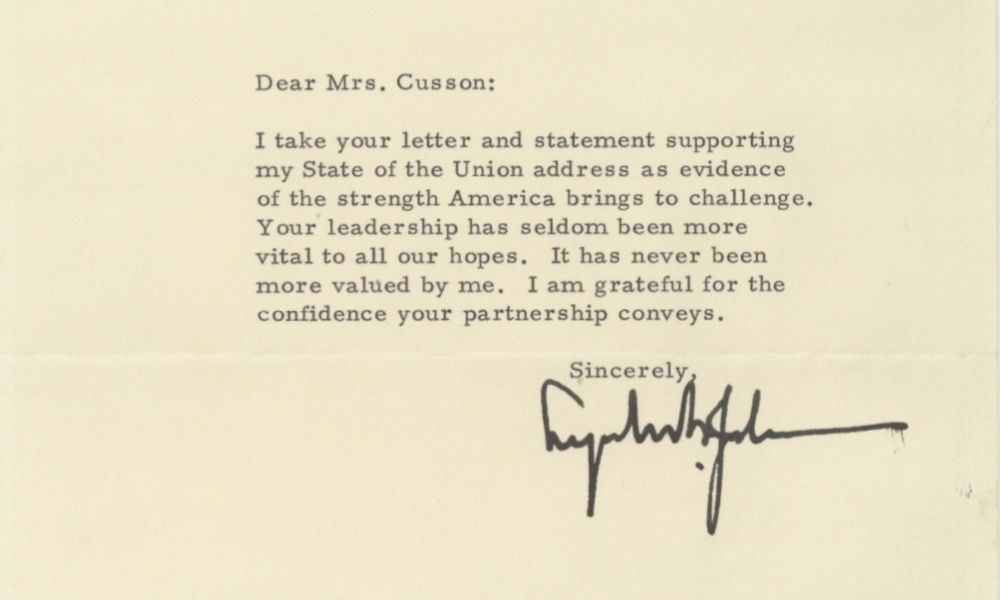 Dear Mrs. Cusson:
I take your letter and statement supporting
my State of the Union address as evidence
of the strength America brings to challenge.
Your leadership has seldom been more
vital to all our hopes.  It has never been
more valued by me.  I am grateful for the
confidence your partnership conveys.
Sincerely,